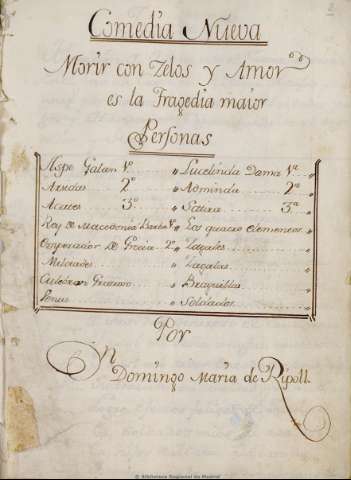 Comedia Nueva
Morir con Zelos y Amor
es la Tragedia maior
Personas
Aspe Galan 1º. " Lucelinda Dama 1ª "
2º " Aominda 2ª "
Acates 3º " 3ª "
Rey de Macedonia Barba 1º " Los quatro Elementos "
Emperador de Grecia 2º " Zagales "
Milciades " Zagalas "
Gracioso "
Venus " Soldados "
Por
Dn Domingo Maria de Ripoll.
© Biblioteca Regional de Madrid